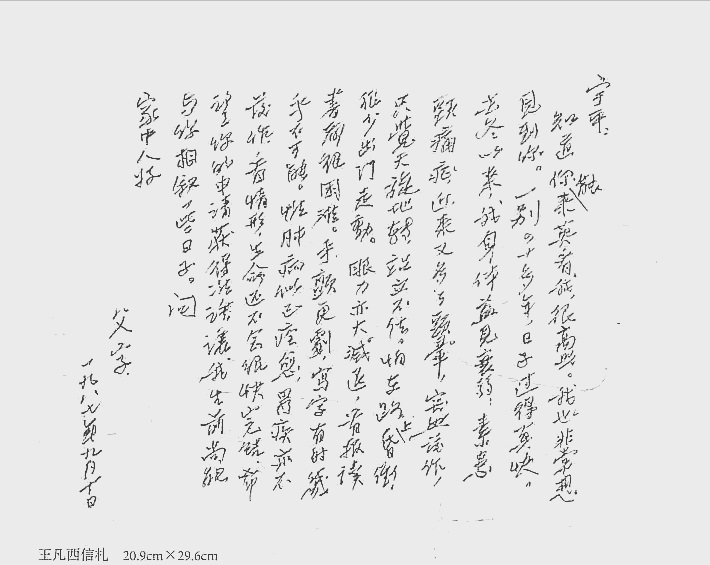 守平：
知道你能来英看我，很高兴。我也非常想
见到你。一别四十多年，日子过得真快。
去冬以来，我身体益见衰弱；素患
头痛症，近来又加
天旋地转，站立不住。怕在路上昏街，
很少出门走动。眼力亦大减退，看报读
书颇难。手颤更剧，写字有时几
乎不可能。性肺病似已痊愈，胃疾亦不
发作，看情形，生命还不会很快完结，希
望你的申请获得批准，让我生前尚能
与你相叙一些日子。问
家中人好
父字
一九八七年九月十日
王凡西信札 20.9cm×29.6cm